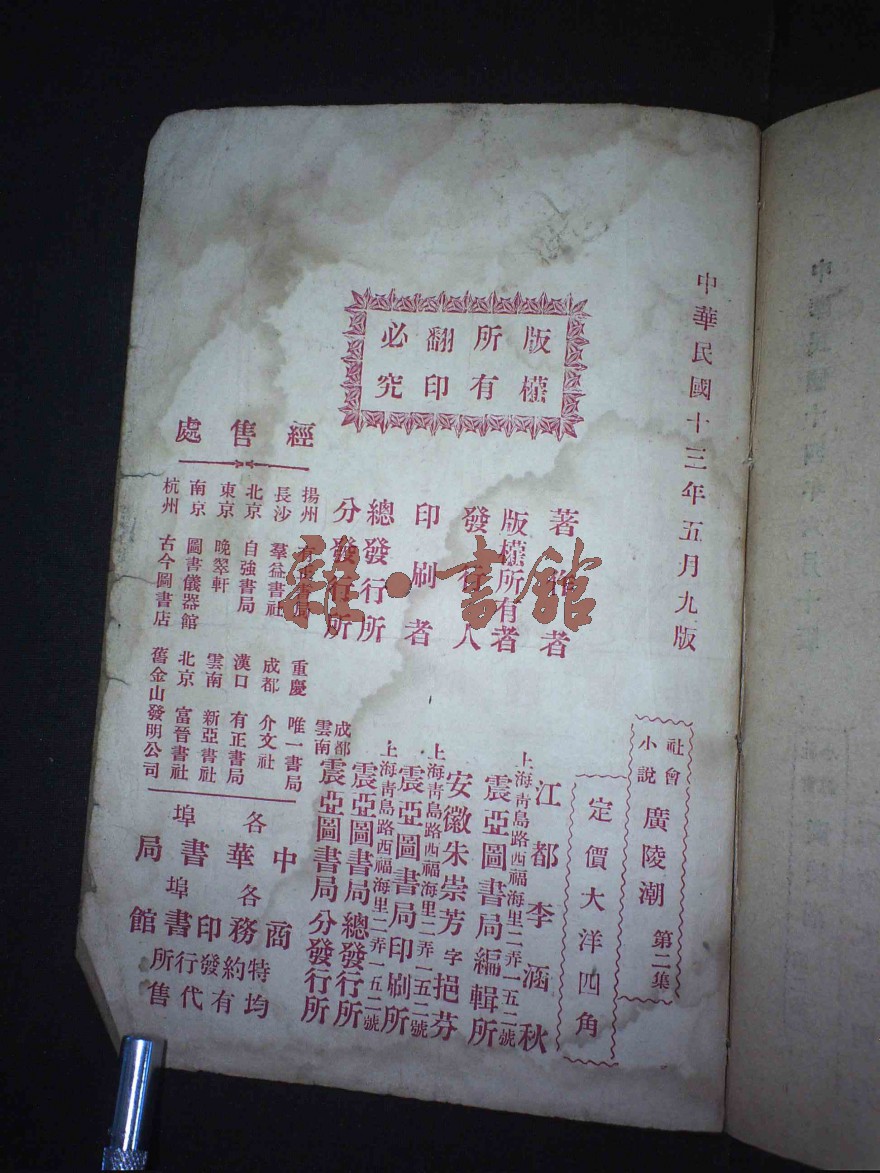 中華民國十三年五月九版
版權
所有
翻印
必究
社會
小說
廣陵潮 第二集
定價大洋四角
著作者
江都李涵秋
版權所有者
上海靑島路西福海里二弄一五二號
震亞圖書局編輯所
發行人
安徽朱崇芳字挹芬
印刷者
上海靑島路西福海里二弄一五二號
震亞圖書局印刷所
總發行所
上海靑島路西福海里二弄一五二號
震亞圖書局總發行所
分發行所
成都
雲南
震亞圖書局分發行所
經售處
揚州 有正書局
長沙 羣益書社
北京 自強書局
東京 晚翠軒
南京 圖書儀器館
杭州 古今圖書店
重慶 唯一書局
成都 介文社
漢口 有正書局
雲南 新亞書社
北京 富晉書社
舊金山發明公司
中華書局
商務印書館
各埠
各埠
特約發行所
均有代售
雜·書館